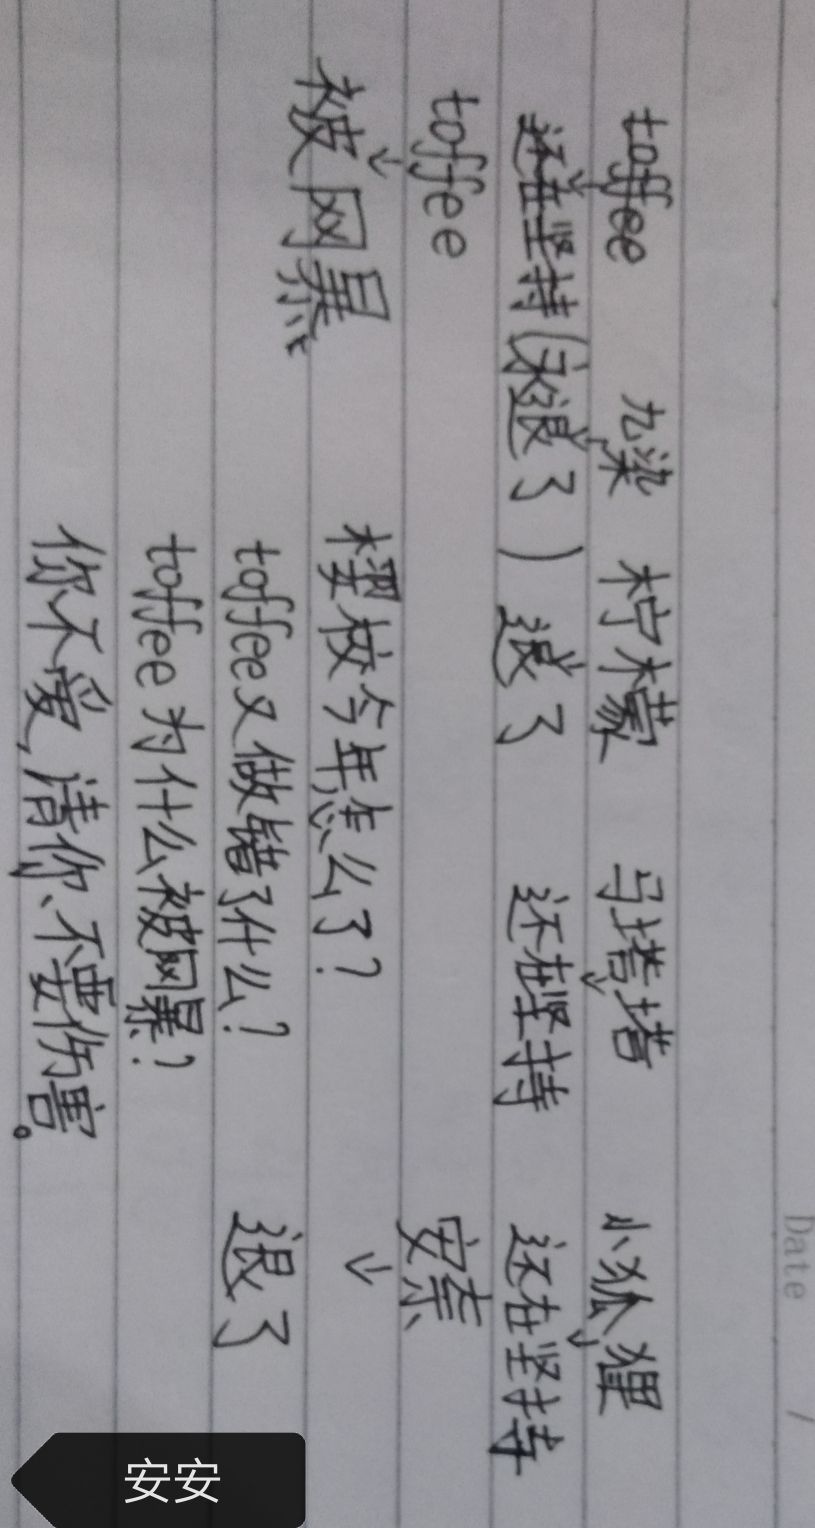 Date /
toffee 九染 柠檬 马塔塔 小狐狸
还在坚持 (永退了) 退了 还在坚持 还在坚持
toffee 安奈
被网暴 樱校今年怎么了?
toffee又做错了什么? 退了
toffee为什么被网暴?
你不爱,请你、不要伤害。
安安